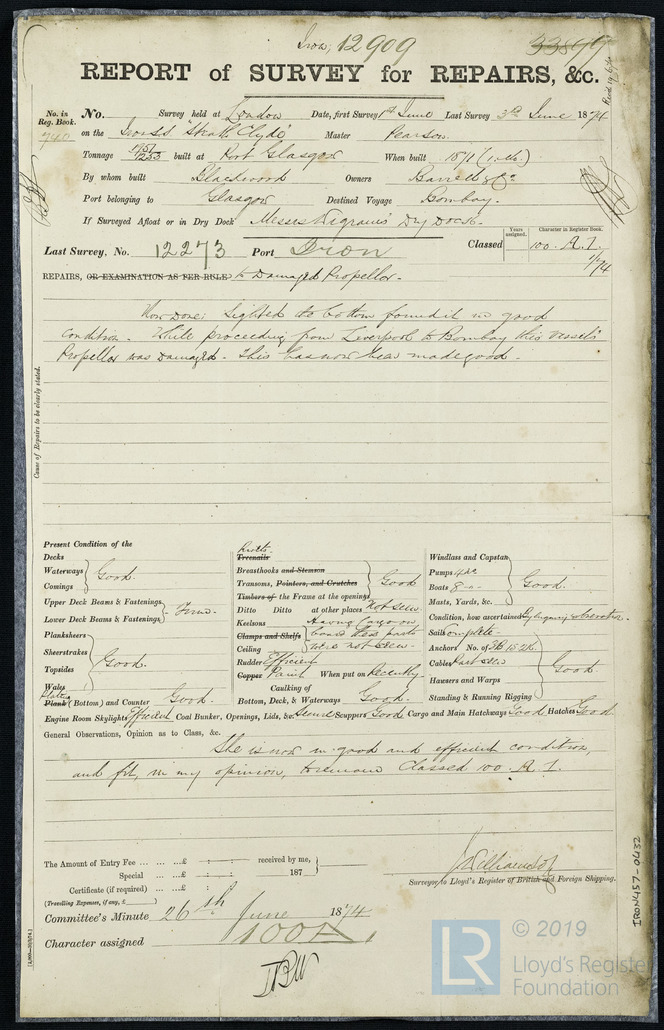 Iron, 12909
33899
REPORT of SURVEY for REPAIRS, &c.
No. in Reg. Book. No. Survey held at London Date, first Survey 1st June Last Survey 3rd June 1874
740 on the Iron SS "Strath Clyde" Master Pearson
Tonnage 1951 1253 built at Port Glasgow When built 1871
By whom built Blackwood Owners Burrell & Co
Port belonging to Glasgow Destined Voyage Bombay.
If Surveyed Afloat or in Dry Dock Messrs Wigrams' Dry Dock.
Last Survey, No. 12273 Port Iron Classed Years assigned. Character in Register Book.
100. A. 1.
1/74
REPAIRS, OR EXAMINATION AS PER RULE to Damaged Propellor.
Now Done: Sighted its bottom found it in good
condition. While proceeding from Liverpool to Bombay this vessel's
Propellor was damaged. This has now been made good.
Cause of Repairs to be clearly stated.
Present Condition of the
Decks
Waterways
Comings
Good.
Upper Deck Beams & Fastenings
Lower Deck Beams & Fastenings
Firm.
Planksheers
Sheerstrakes
Topsides
Wales
Good.
Plating
Plank (Bottom) and Counter Good.
Rivets.
Treenails
Breasthooks and Stemson
Transoms, Pointers, and Crutches
Good
Timbers of the Frame at the openings
Ditto Ditto at other places Not seen
Keelsons Having Cargo on
Clamps and Shelfs board these parts
Ceiling were not seen.
Rudder Efficient
Copper Paint When put on Recently.
Caulking of
Bottom, Deck, & Waterways Good.
Windlass and Capstan
Pumps
Boats
Masts, Yards, &c.
Good.
Condition, how ascertained By Enquiry & Observation.
Sails Complete.
Anchors No. of
Cables Part seen
Hawsers and Warps
Standing & Running Rigging
Good.
Engine Room Skylights Efficient Coal Bunker, Openings, Lids, &c. Secure Scuppers Good Cargo and Main Hatchways Good Hatches Good
General Observations, Opinion as to Class, &c.
She is now in good and efficient condition,
and fit, in my opinion, to remain Classed 100. A. 1.
The Amount of Entry Fee ... ... ...£ : : received by me,
Special ... ...£ : : 187
Certificate (if required) ... ...£ :
(Travelling Expenses, if any, £ )
Surveyor to Lloyd's Register of British and Foreign Shipping.
Committee's Minute 26th June 1874
Character assigned 100A 1
IRON457-0432
© 2019
LR Lloyd's Register
Foundation